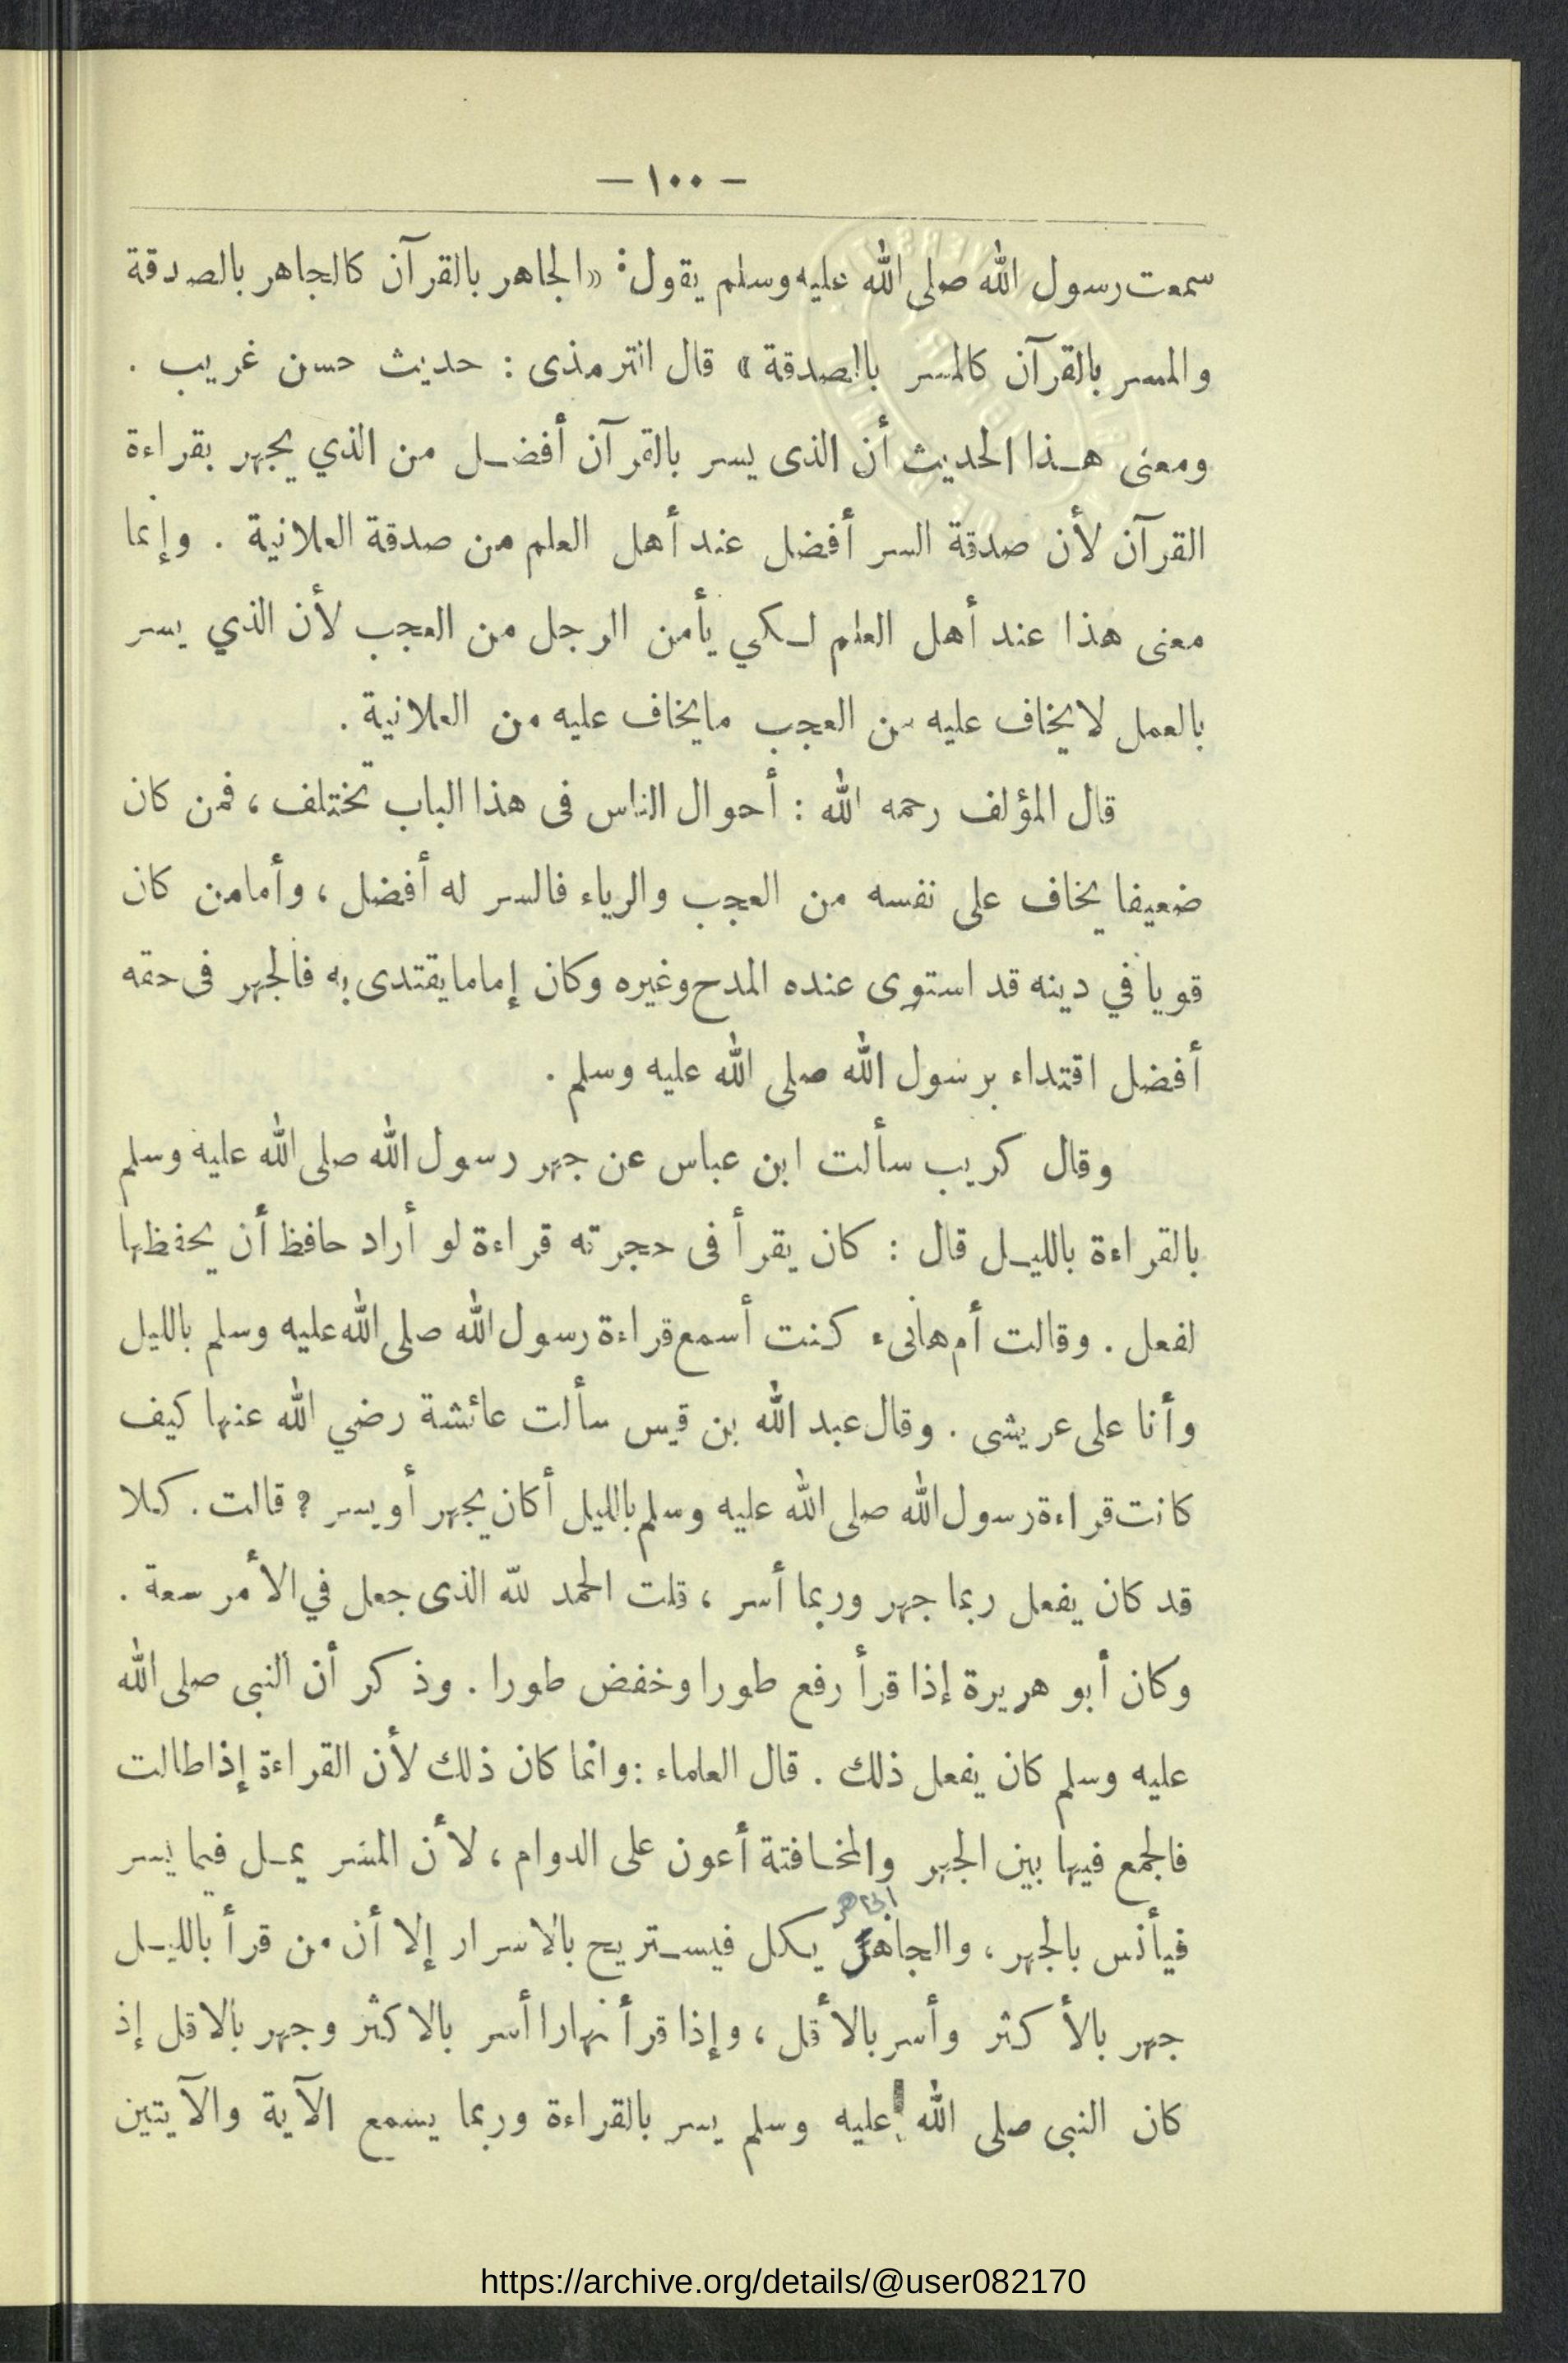 — ١٠٠ —
سمعت رسول الله صلى الله عليه وسلم يقول: «الجاهر بالقرآن كالجاهر بالصدقة
والمسر بالقرآن كالمسر بالصدقة» قال الترمذى : حديث حسن غريب .
ومعنى هـذا الحديث أن الذى يسر بالقرآن أفضـل من الذي يجهر بقراءة
القرآن لأن صدقة السر أفضل عند أهل العلم من صدقة العلانية . وإنما
معنى هذا عند أهل العلم لـكي يأمن الرجل من العجب لأن الذي يسر
بالعمل لايخاف عليه من العجب مايخاف عليه من العلانية .
قال المؤلف رحمه الله : أحوال الناس فى هذا الباب تختلف ، فمن كان
ضعيفا يخاف على نفسه من العجب والرياء فالسر له أفضل ، وأمامن كان
قويا في دينه قد استوى عنده المدح وغيره وكان إمامايقتدى به فالجهر فى حقه
أفضل اقتداء برسول الله صلى الله عليه وسلم .
وقال كريب سألت ابن عباس عن جهر رسول الله صلى الله عليه وسلم
بالقراءة بالليـل قال : كان يقرأ فى حجرته قراءة لو أراد حافظ أن يحفظها
لفعل . وقالت أم هانىء كنت أسمع قراءة رسول الله صلى الله عليه وسلم بالليل
وأنا على عريشى . وقال عبد الله بن قيس سألت عائشة رضي الله عنها كيف
كانت قراءة رسول الله صلى الله عليه وسلم بالليل أكان يجهر أو يسر ؟ قالت . كلا
قد كان يفعل ربما جهر وربما أسر ، قلت الحمد لله الذى جعل في الأمر سعة .
وكان أبو هريرة إذا قرأ رفع طورا وخفض طورا . وذكر أن النبى صلى الله
عليه وسلم كان يفعل ذلك . قال العلماء : وانما كان ذلك لأن القراءة إذا طالت
فالجمع فيها بين الجهر والمخـافتة أعون على الدوام ، لأن المسر يمـل فيما يسر
الجاهر
فيأنس بالجهر ، والجاهر يكل فيسـتريح بالاسرار إلا أن من قرأ بالليـل
جهر بالأكثر وأسر بالأقل ، وإذا قرأ نهارا أسر بالاكثر وجهر بالاقل إذ
كان النبى صلى الله عليه وسلم يسر بالقراءة وربما يسمع الآية والآيتين
https://archive.org/details/@user082170